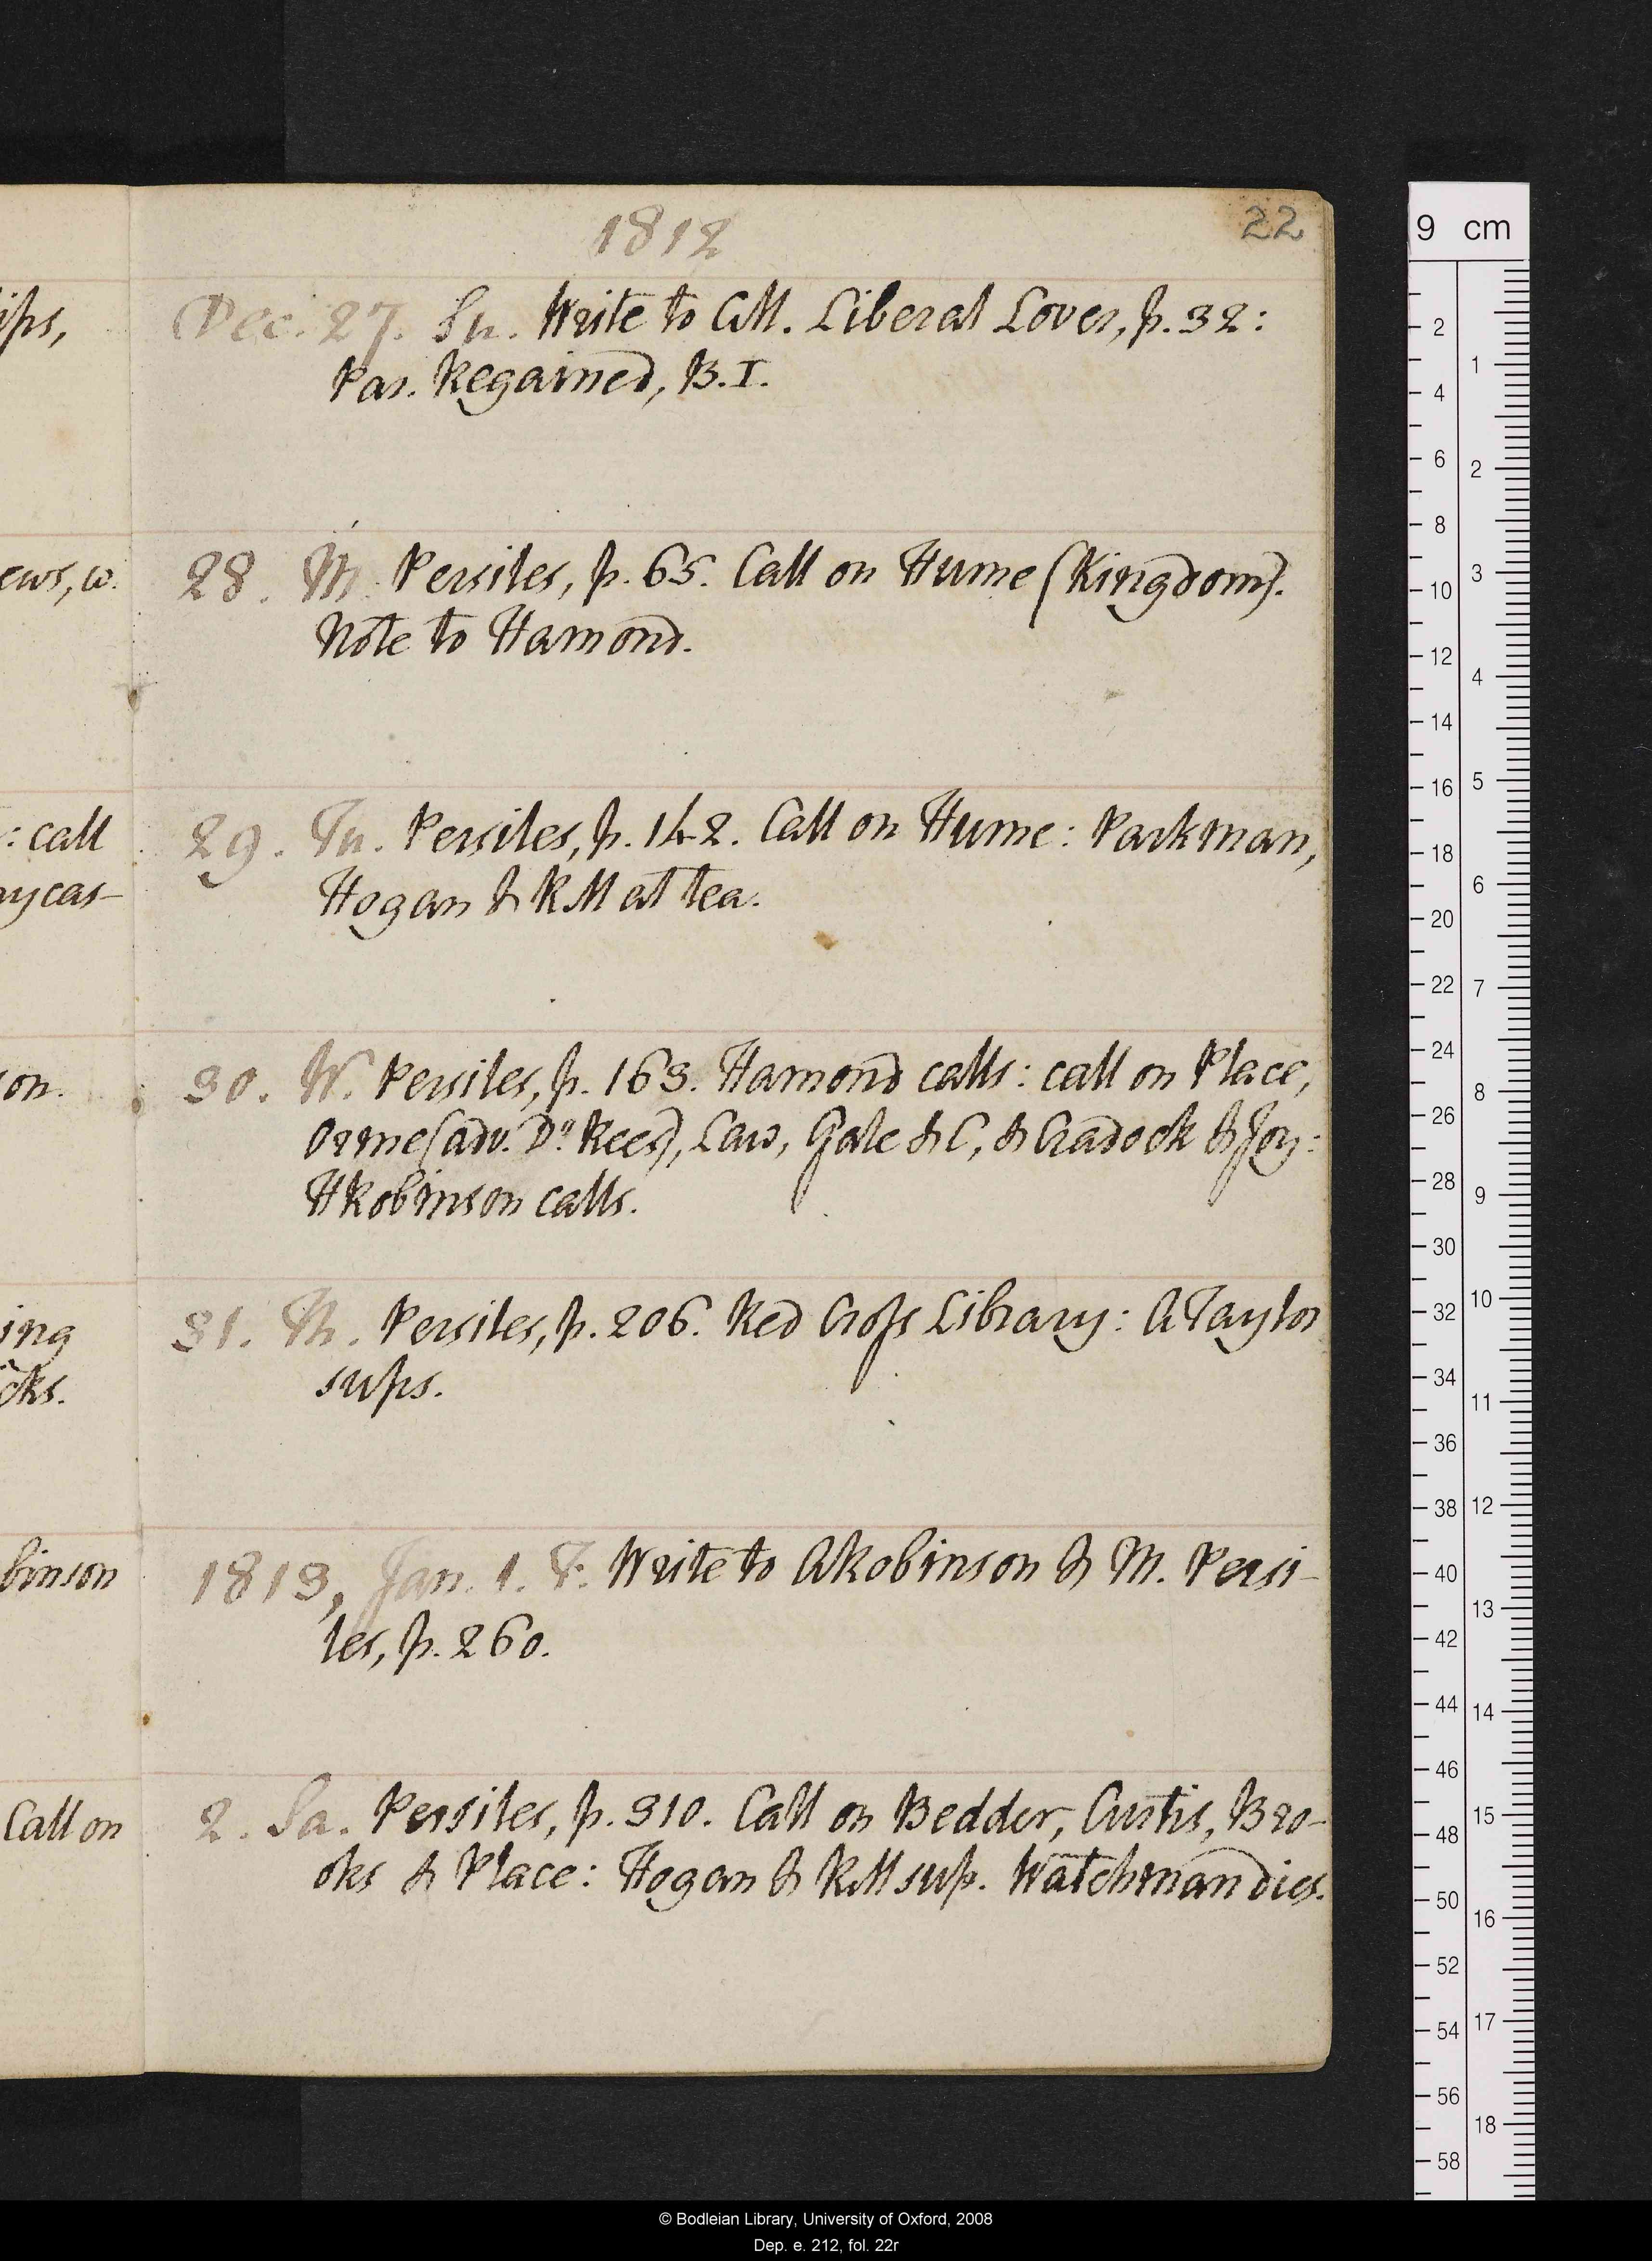 1812
22
Dec. 27. Su. Write to CM. Liberal Lover, p. 32:
Par. Regained, B. I.
28. M. Persiles, p. 65. Call on Hume (Kingdom).
Note to Hamond.
29. Tu. Persiles, p. 142. Call on Hume: Parkman,
Hogan & RM at tea.
30. W. Persiles, p. 163. Hamond calls: call on Place,
Orme (adv. Dr Rees), Law, Gale & C, & Cradock & Joy:
HRobinson calls.
31. Th. Persiles, p. 206. Red Croſs Library: ATaylor
sups.
1813, Jan. 1. F. Write to ARobinson & M. Persi-
les, p. 260.
2. Sa. Persiles, p. 310. Call on Bedder, Curtis, Bro-
oks & Place: Hogan & RM sup. Watchman dies.
ips,
ews, w.
: call
ycas-
on.
ing
cks.
binson
Call on
9 cm
2
4
6
8
10
12
14
16
18
20
22
24
26
28
30
32
34
36
38
40
42
44
46
48
50
52
54
56
58
1
2
3
4
5
6
7
8
9
10
11
12
13
14
15
16
17
18
© Bodleian Library, University of Oxford, 2008
Dep. e. 212, fol. 22r